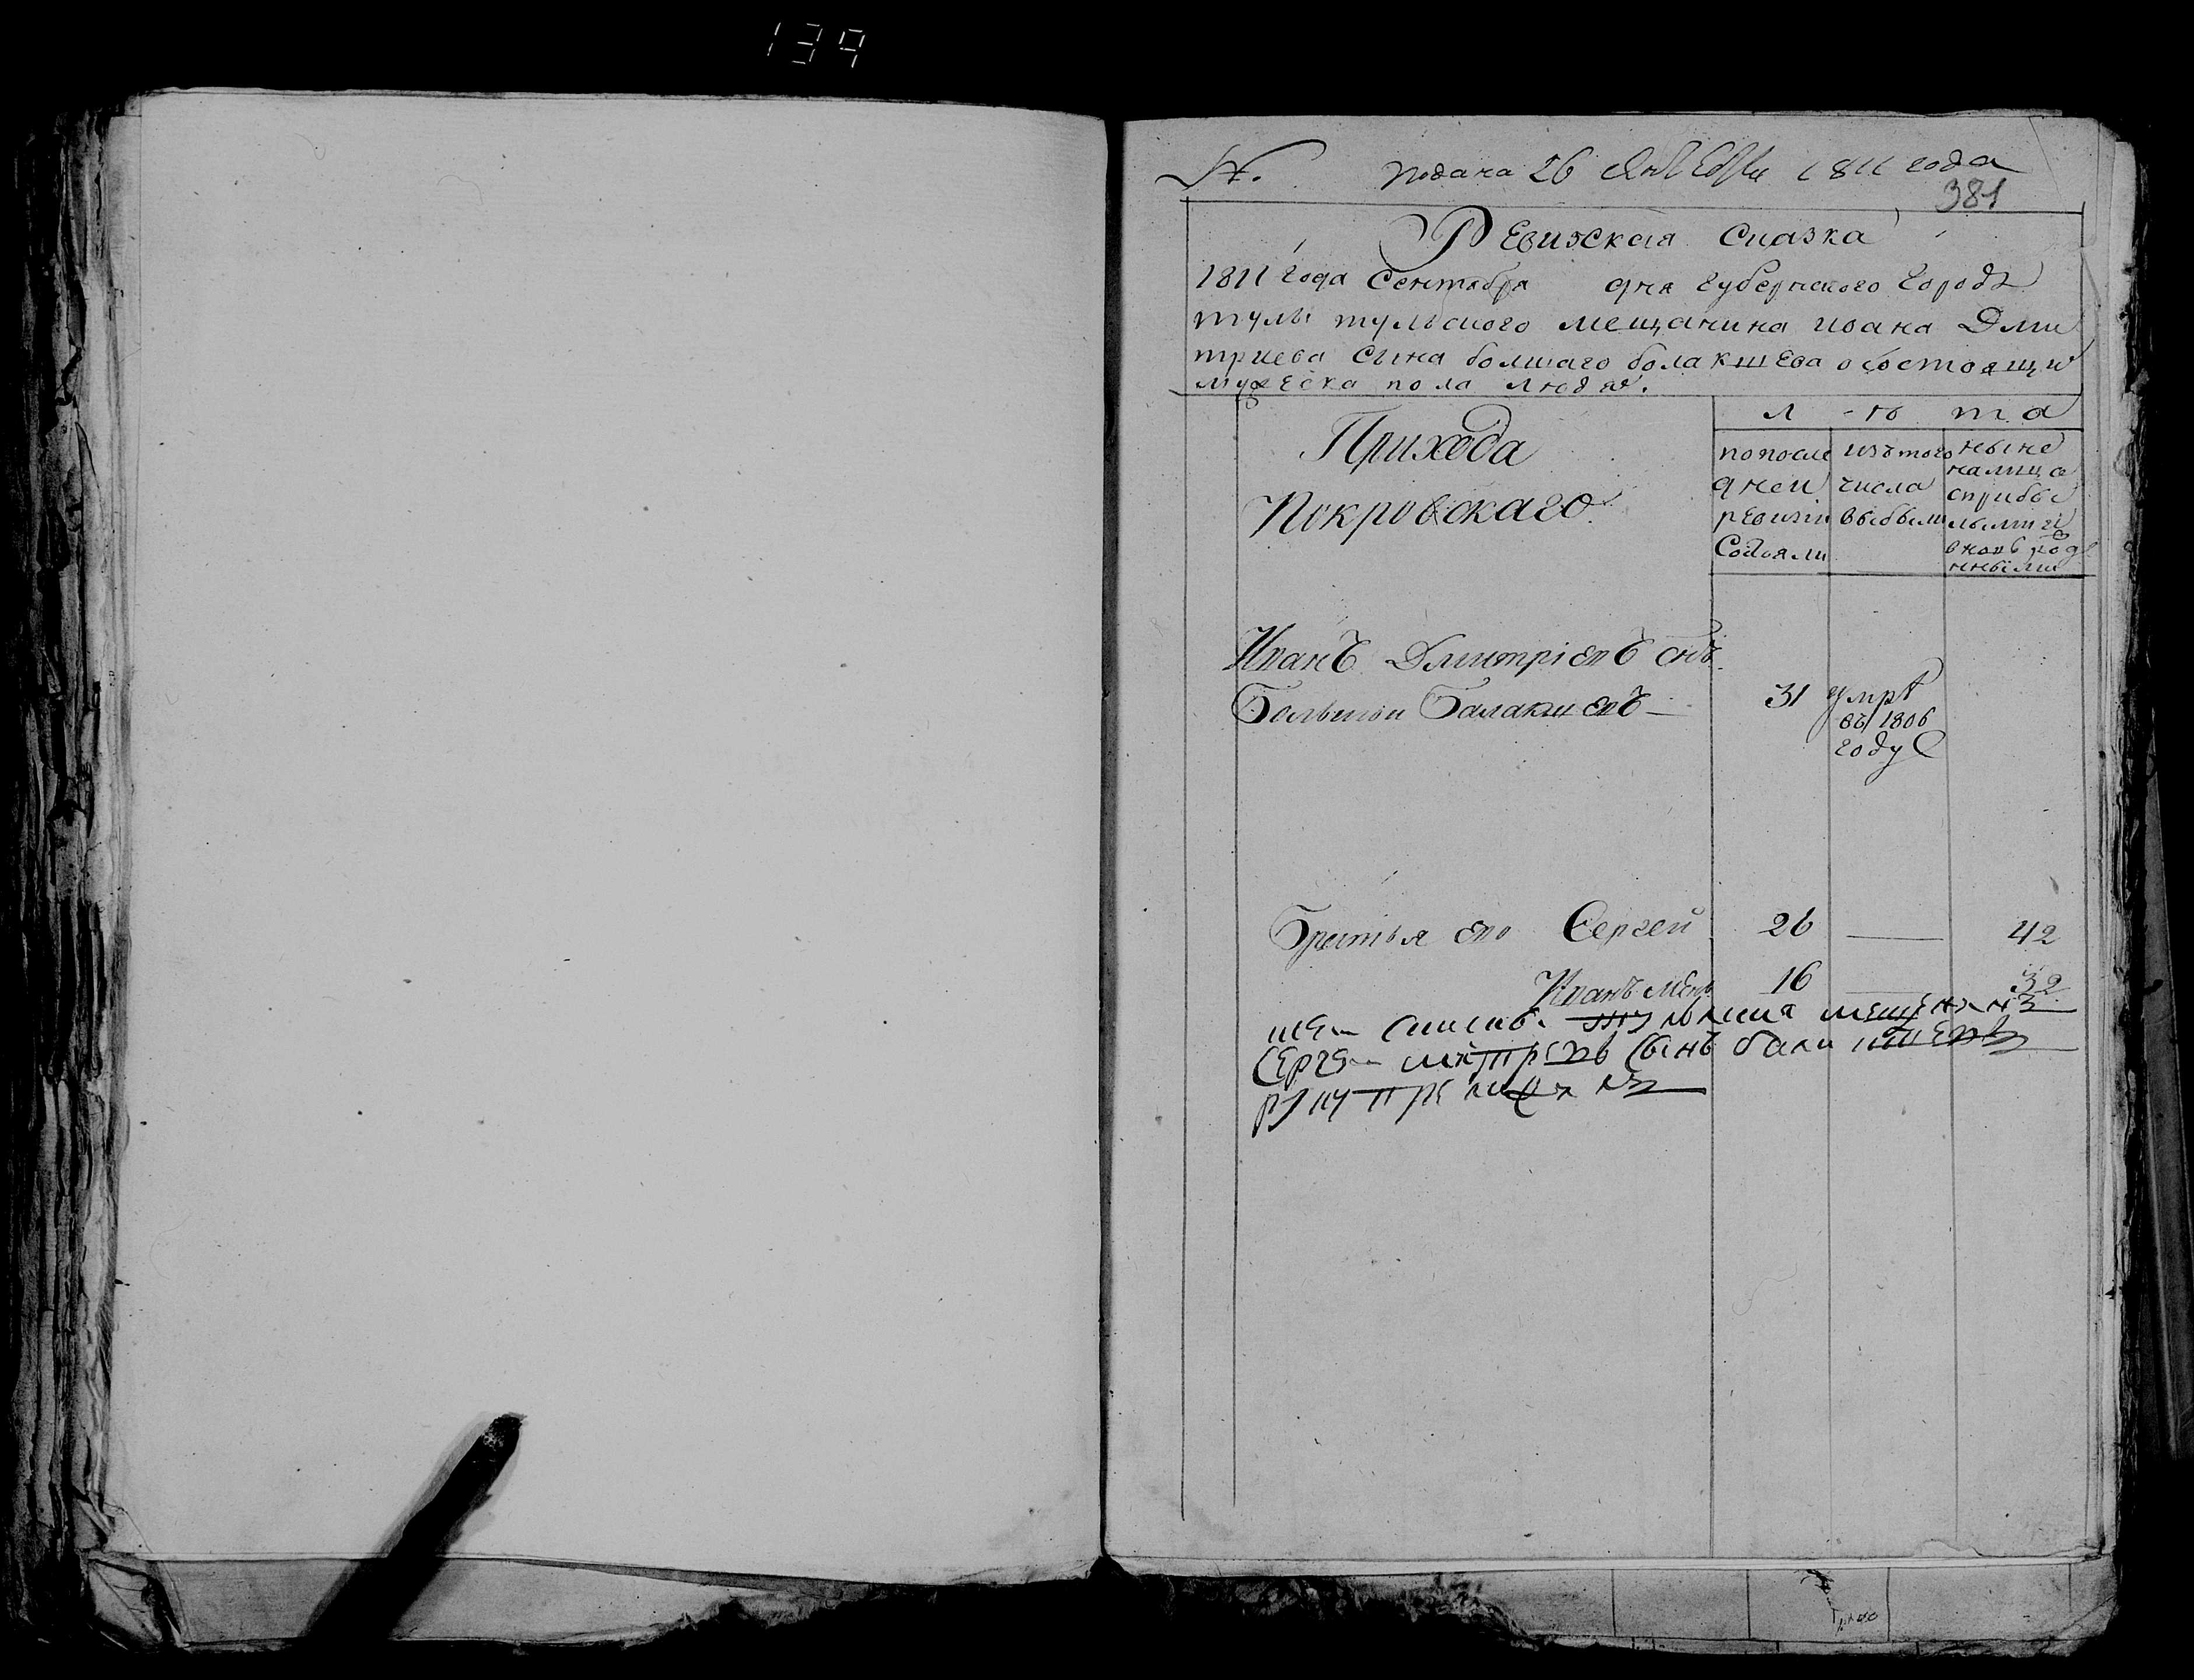 139
№. подана 26 Октября 1811 года
381
Ревизская Сказка
1811 года Сентября дня Губернского Города
тулы тульского мещанина ивана Дми
триева сына болшаго болакшева о состоящи
мужеска пола людях.
Прихода
Покровскаго
л - ѣ т а
по после
дней
ревизии
Состояли
изъ того
числа
выбыли
ныне
налица
с прибы
лыми и
вновь рож
нными
Иванъ Дмитріевъ снъ
Большой Балакшевъ 31 умре
въ 1806
году
Братья ево Сергей 26 — 42
Иванъ мень 16 — 32
тулския мещенин
Сергеи Митревъ Сынъ бала
руку пре